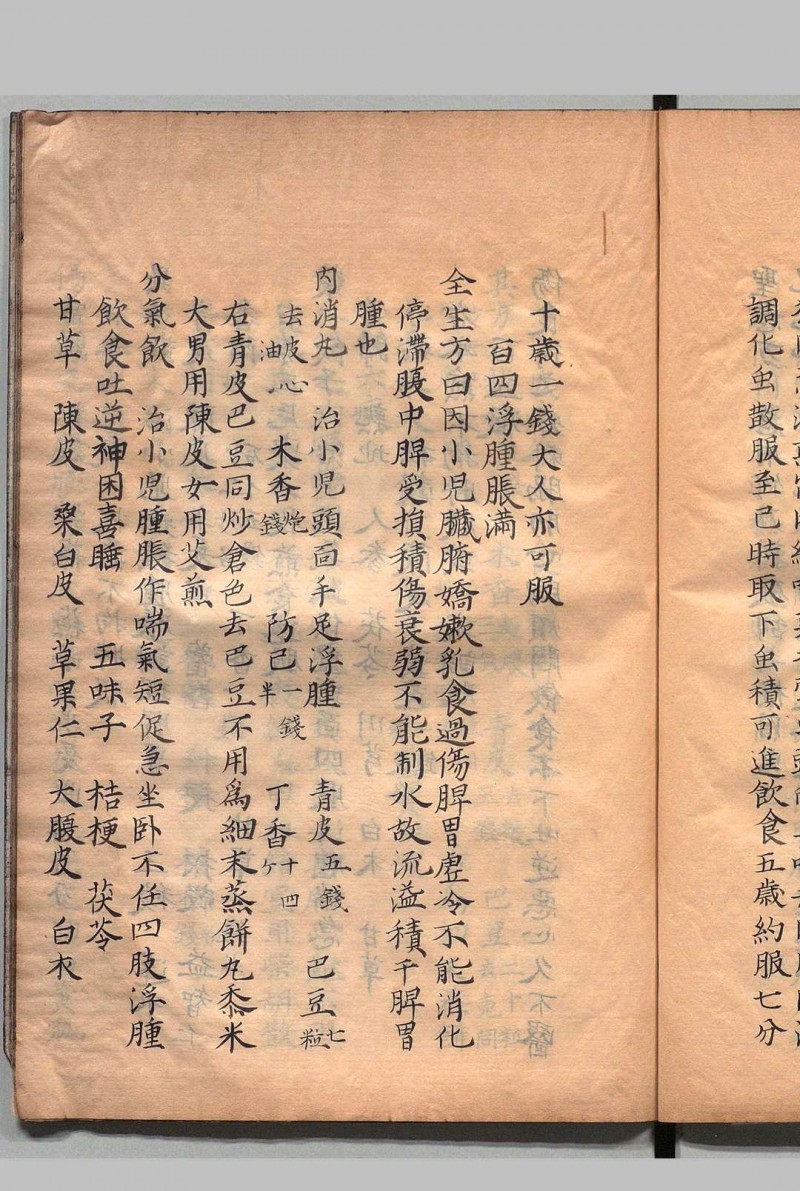 調化虫散服至己時取下虫積可進飲食五歲約服七分
十歲一錢大人亦可服
百四浮腫脹滿
全生方曰因小児臟腑嬌嫰乳食過傷脾胃虛冷不能消化
停滯腹中脾受損積傷衰弱不能制水故流溢積千脾胃
腫也
内消丸 治小児頭面手足浮腫 青皮五錢 巴豆七粒
去皮心油 木香炮錢 防己一錢半 丁香十四ケ
右青皮巴豆同炒倉色去巴豆不用為細末蒸餅丸黍米
大男用陳皮女用艾煎
分氣飲 治小児腫脹作喘氣短促急坐卧不任四肢浮腫
飲食吐逆神困喜睡 五味子 桔梗 茯苓
甘草 陳皮 桒白皮 草果仁 大腹皮 白朮